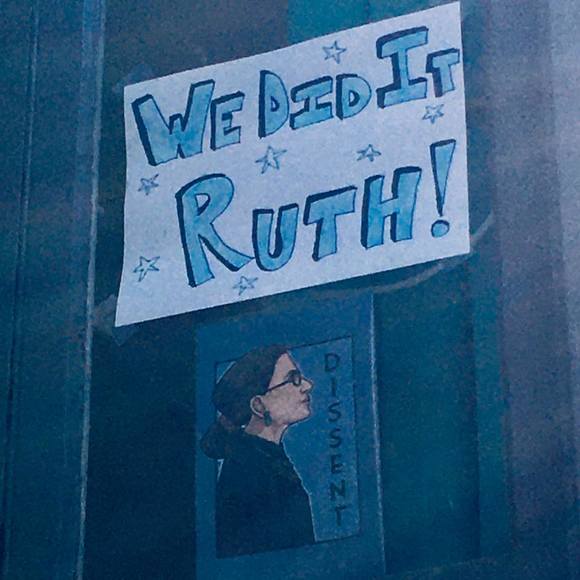 WE DID IT
RUTH!
DISSENT